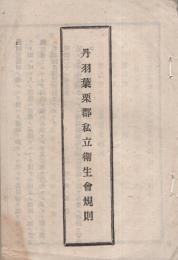 丹羽葉栗郡私立衛生會規則